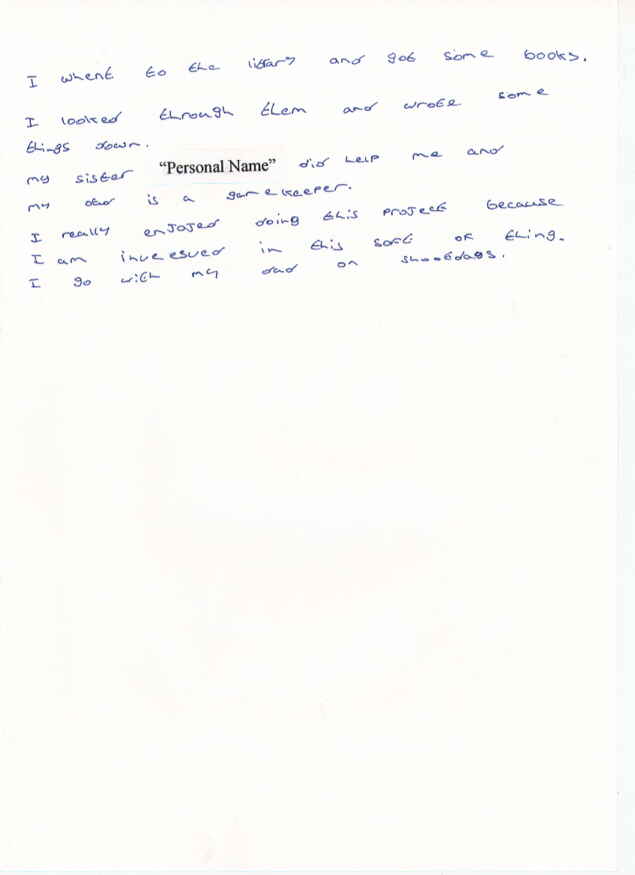 I whent to the libary and got some books.
I looked through them and wrote some
things down.
my sister “Personal Name” did help me and
my dad is a gamekeeper.
I really enjoyed doing this project because
I am in this sort of thing.
I go with my dad on shootdays.